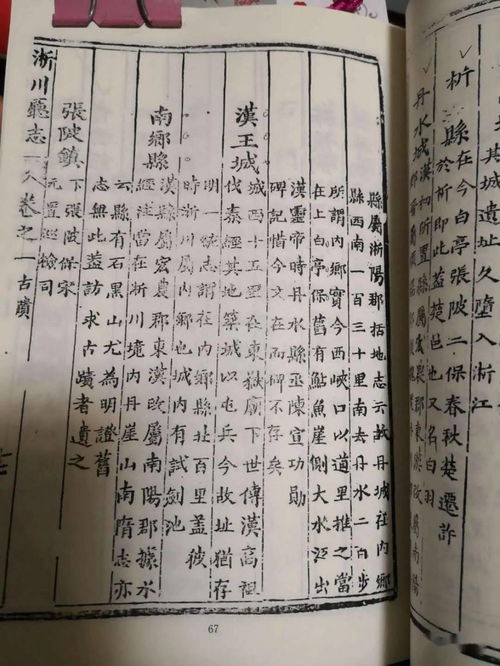 析縣在今白亭張陂二保春秋楚遷許
於析即此蓋楚邑也又名白羽
丹水城漢初所置縣屬
城址久墮入淅江
縣屬淅陽郡括地志云故丹城在內鄉
縣西南一百三十里南去丹水二百步
所謂內鄉實今西峽口以道里推之當
在上白亭保舊有鮎魚崖側大水江出
漢靈帝時丹水縣丞陳宣功勛
碑記惜今文在而碑不存矣
漢王城
城西十五里在東嶽廟下世傳漢高祖
伐秦經其地築城以屯兵今故址猶存
明一統志謂在內鄉縣址百里蓋彼
時淅川屬內鄉也城內有試劍池
南鄉縣
漢縣屬宏農郡東漢改屬南陽郡據水
經注當在淅川境內丹崖山南隋志亦
云縣有石黑山尤為明證舊
志無此蓋訪求古蹟者遺之
張陂鎮
下張陂保宋
元置巡檢司
淅川廳志
卷之一古蹟
67